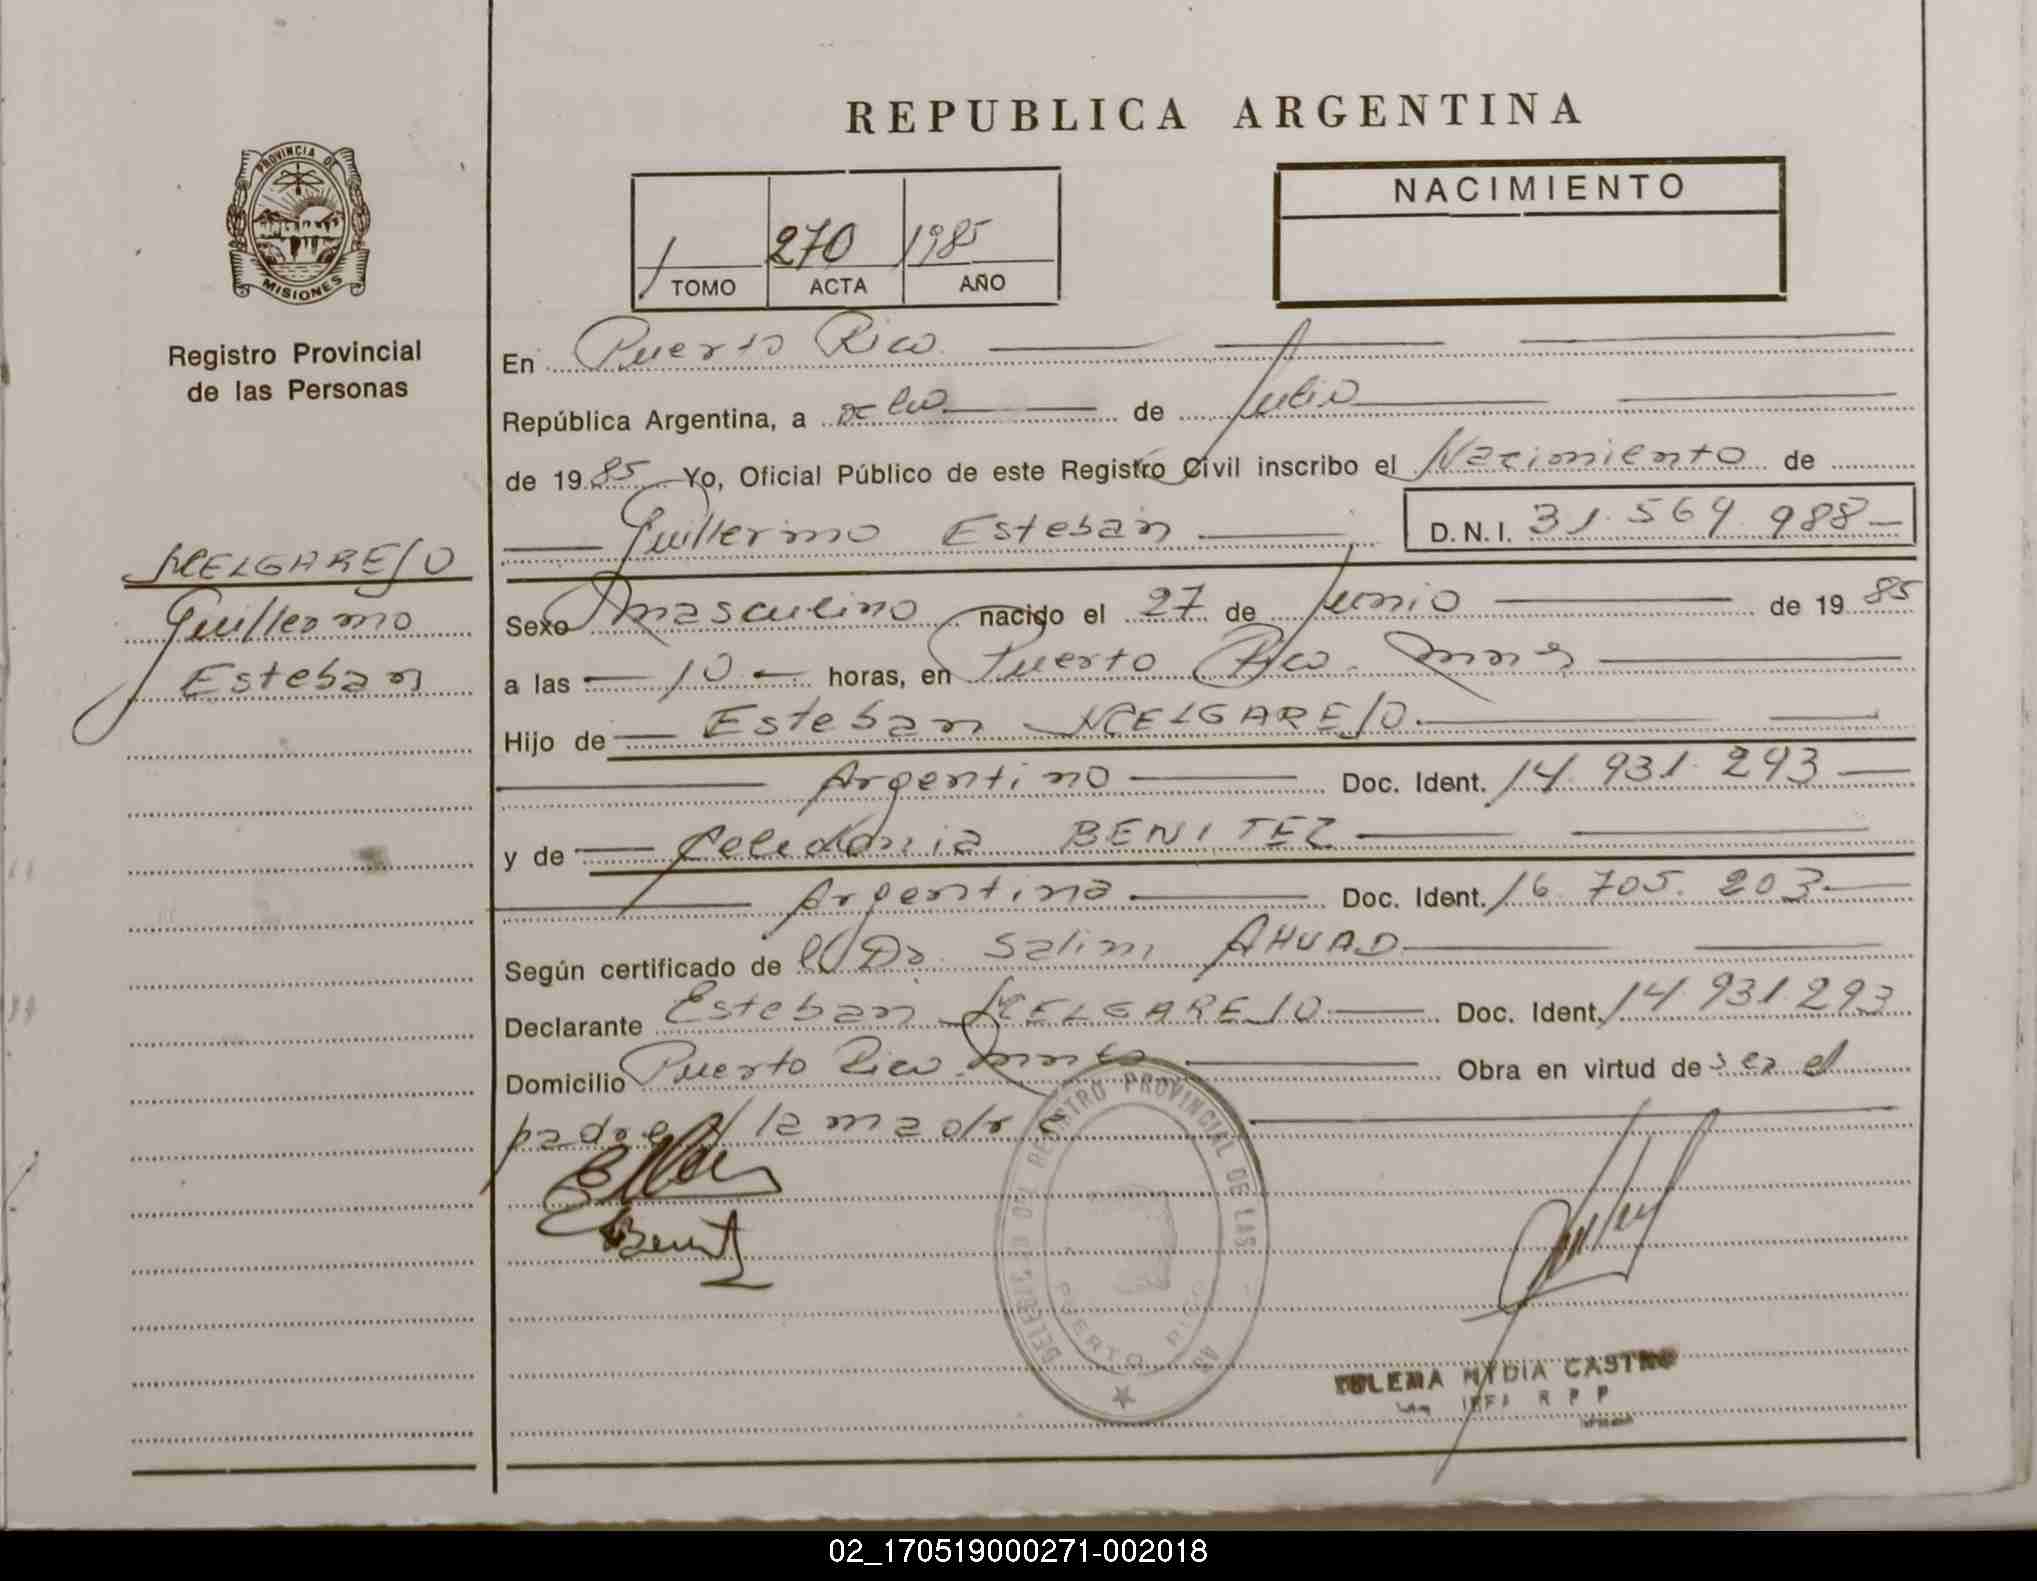 REPUBLICA ARGENTINA
PROVINCIA DE
MISIONES
Registro Provincial
de las Personas
NACIMIENTO
1 270 1985
TOMO ACTA AÑO
En Puerto Rico
República Argentina, a de Julio
de 1985 Yo, Oficial Público de este Registro Civil inscribo el Nacimiento de
Guillermo Esteban D.N.I. 31.569.988
MELGAREJO
Guillermo
Esteban
Sexo masculino nacido el 27 de Junio de 1985
a las 10 horas, en Puerto Rico. Mnes
Hijo de Esteban MELGAREJO
Argentino Doc. Ident. 14.931.293
y de Celedonia BENITEZ
Argentina Doc. Ident. 16.705.203
Según certificado de el Dr. Salim AHUAD
Declarante Esteban MELGAREJO Doc. Ident. 14.931.293
Domicilio Puerto Rico. Mnes Obra en virtud de ser el
padre y la madre
DELEGACIO DEL REGISTRO PROVINCIAL DE LAS
PUERTO RICO
MYDIA CASTRO
02_170519000271-002018